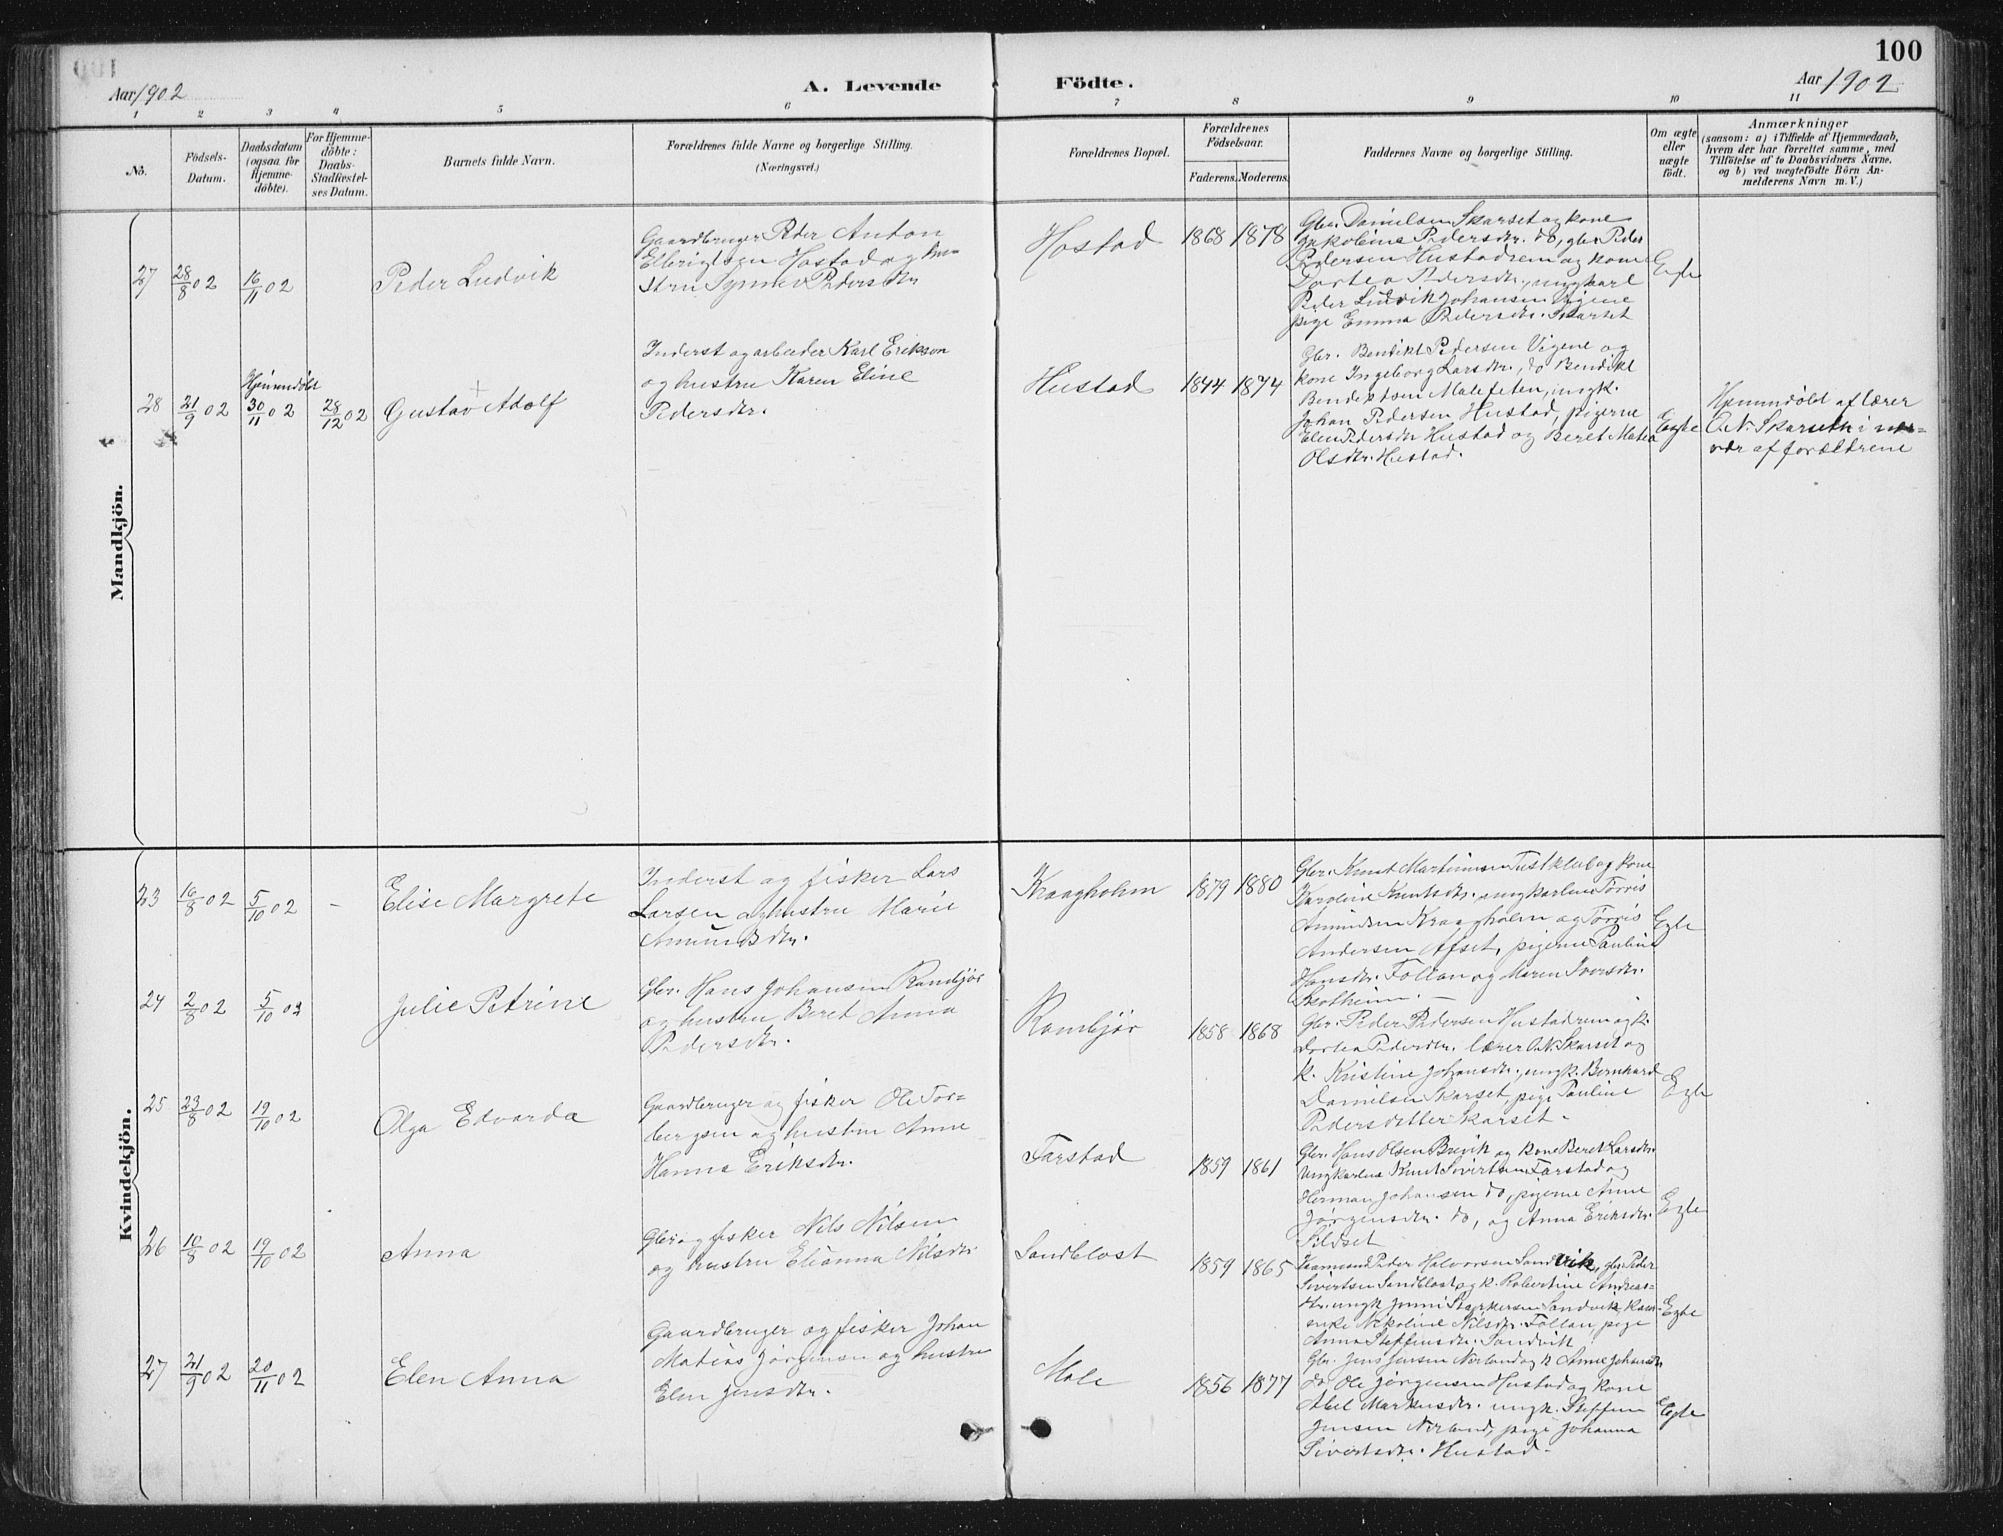 100
Aar 1902
A. Levende Födte.
Aar 1902
1 2 3 4 5 6 7 8 9 10 11
No.
Födsels-Datum.
Daabsdatum (ogsaa for Hjemme-döbte).
For Hjemme-döbte: Daabs-Stadfæstel-ses Datum.
Barnets fulde Navn.
Forældrenes fulde Navne og borgerlige Stilling.
(Næringsvei.)
Forældrenes Bopæl.
Forældrenes Födselsaar.
Faderens. Moderens.
Faddernes Navne og borgerlige Stilling.
Om ægte eller uægte födt.
Anmærkninger
(saasom: a) i Tilfælde af Hjemmedaab,
hvem der har forrettet samme, med
Tilföielse af to Daabsvidners Navne.
og b) ved uægtefödte Börn An-
melderens Navn m. V.)
Mandkjön.
27 28/8 02 16/11 02 Peder Ludvik
Gaardbruger Peder Anton
Ellerigtsen Hostad og hu-
stru Synnev Pedersdtr
Hostad 1868 1878
Gbr. Danielsen Skarset og kone
Jakobine Pedersdtr. do, gbr Peder
Pedersen Hustadrem og kone
Dortea Pedersdtr., ungkarl
Peder Ludvik Johansen Vigene
pige Emma Pedersdtr. Skarset
Egte
28 21/9 02 Hjemmdøbt 30/11 02 28/12 02 Gustav Adolf
+
Inderst og arbeider Karl Erikson
og hustru Karen Eline
Pedersdtr.
Hustad 1844 1874
Gbr. Bendikt Pedersen Vigene og
kone Ingeborg Larsdtr., do Bendikt
Bendiktsen Malefeten, ungk.
Johan Pedersen Hustad, pigerne
Elen Pedersdtr Hustad og Beret Matea
Olsdtr. Hustad.
Egte
Hjemmdøbt af lærer
O.N. Skarseth i nær-
vær af forældrene
Kvindekjön.
23 16/8 02 5/10 02 - Elise Margrete
Inderst og fisker Lars
Larsen og hustru Marie
Amundsdtr.
Kraagholm 1879 1880
Gbr. Knut Martinusen Tustklub og kone
Karoline Knutsdtr. ungkarlene Torris
Amundsen Kraagholm og Torris
Andersen Afset, pigerne Pauline
Hansdtr. Follan og Maren Iversdtr.
Skotheim. -
Egte
24 2/8 02 5/10 02 Julie Petrine
Gbr. Hans Johansen Rambjør
og hustru Beret Anna
Pedersdtr.
Rambjør 1858 1868
Gbr. Peder Pedersen Hustadrem og k.
Dortea Pedersdtr. lærer O.N. Skarset og
k. Kristine Johansdtr., ungk. Bernhard
Danielsen Skarset, pige Pauline
Pedersdatter Skarset -
Egte
25 23/8 02 19/10 02 Olga Edvarda
Gaardbruger og fisker Ole Tor-
bergsen og hustru Anne
Hanna Eriksdtr.
Farstad 1859 1861
Gbr. Hans Olsen Brevik og kone Beret Larsdtr.
Ungkarlene Knut Sivertsen Farstad og
Herman Johansen do, pigerne Anne
Jørgensdtr. do, og Anna Eriksdtr.
Sildset
Egte
26 10/8 02 19/10 02 Anna
Gbr. og fisker Nils Nilsen
og hustru Elianna Nilsdtr
Sandblost 1859 1865
Kaarmand Peder Halvorsen Sandvik, gbr. Peder
Sivertsen Sandblost og k. Robertine Andreas-
dtr. ungk Jonni Styrkersen Sandvik, kaar-
enke Nikoline Nilsdtr. Follan, pige
Anna Steffensdtr. Sandvik
Egte
27 21/9 02 20/11 02 Elen Anna
Gaardbruger og fisker Johan
Matias Jørgensen og hustru
Elen Jensdtr.
Male 1856 1877
Gbr. Jens Jensen Nerland og k Anne Johansdtr
do Ole Jørgensen Hustad og kone
Abel Markusdtr. ungk. Steffen
Jensen Nerland, pige Johanna
Sivertsdtr. Hustad -
Egte